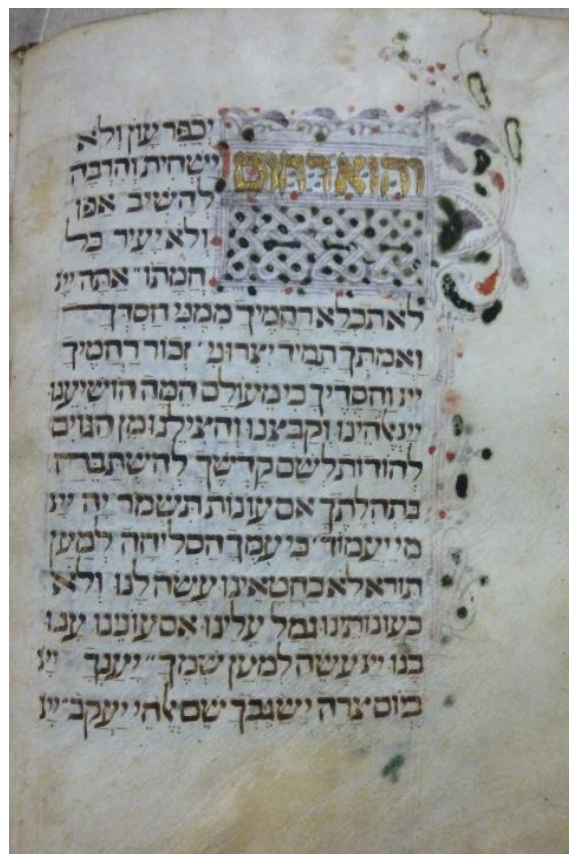 והוא רחום
יכפר עון ולא
ישחית והרבה
להשיב אפו
ולא יעיר כל
חמתו אתה ייי
לא תכלא רחמיך ממנו חסדך
ואמתך תמיד יצרונו זכור רחמיך
ייי וחסדיך כי מעולם המה הושיענו
ייי אלהינו וקבצנו והצילנו מן הגוים
להודות לשם קדשך להשתבח
בתהלתך אם עונות תשמר יה ייי
מי יעמוד כי עמך הסליחה למען
תורא לא כחטאינו עשה לנו ולא
כעונותינו גמל עלינו אם עוננו ענו
בנו ייי עשה למען שמך יענך ייי
ביום צרה ישגבך שם אלהי יעקב ייי